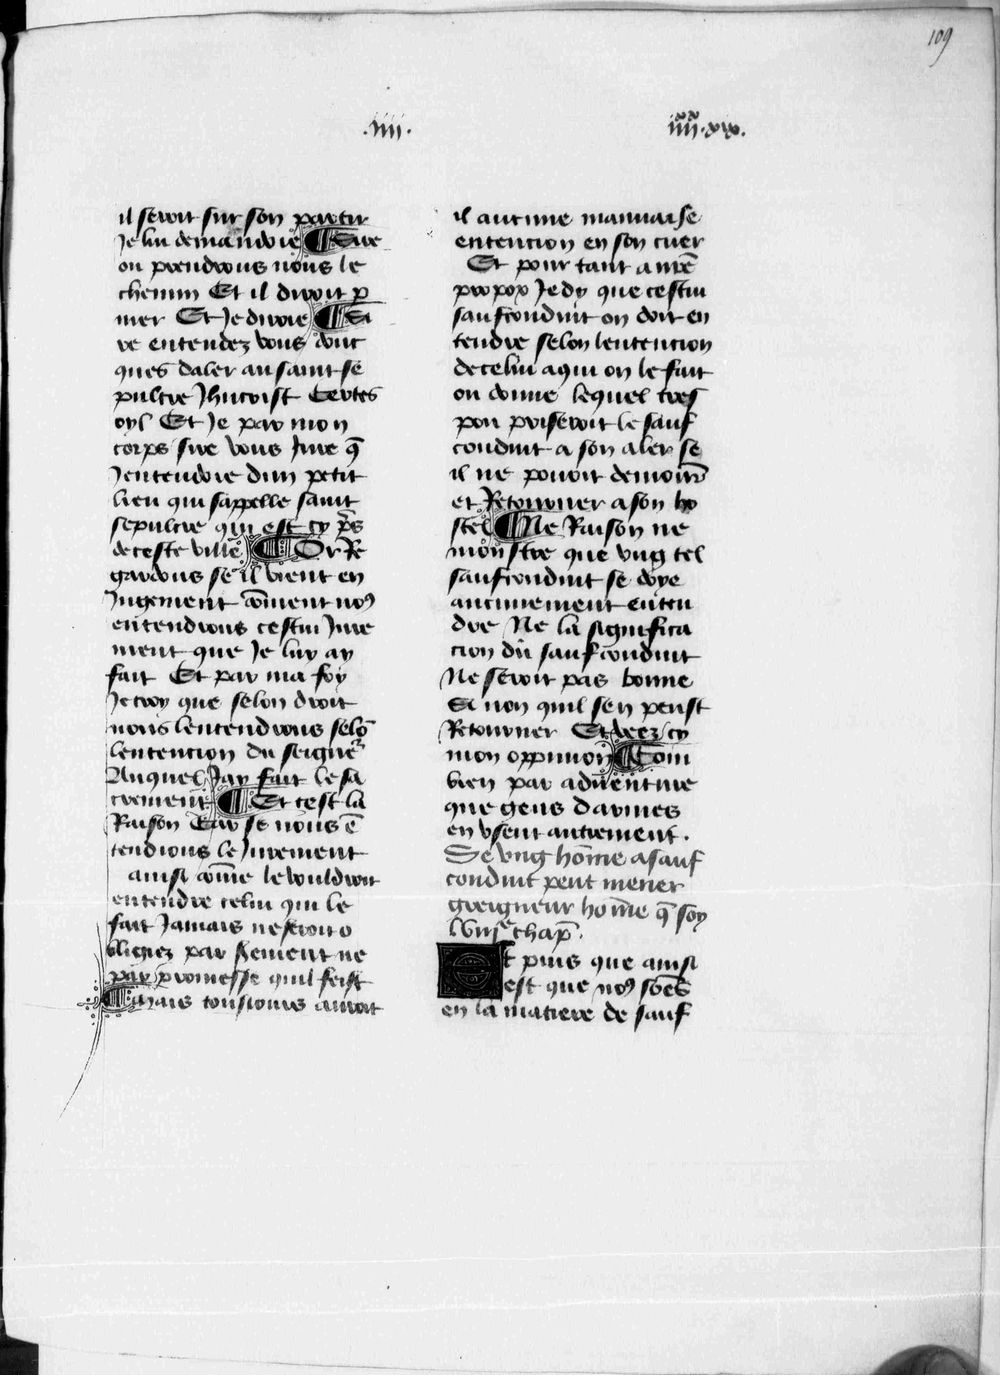 109
.iiii. iiii.xx xix.
il seroit sur son partir
Je lui demandoie ¶ Sire
ou prendrons nous le
chemin Et il diroit p
mer Et Je diroie ¶ Si
re entendez vous dont
ques daler au saint se
pulcre Jhucrist Certes
oyl Et Je par mon
corps sire vous Jure q̄
Jentendoie dun petit
lieu qui sappelle saint
sepulcre qui est cy p̄s
de ceste ville ¶ Or Re
gardons se il vient en
Jugement cōment no9
entendrons cestui Jure
ment que Je luy ay
fait Et par ma foy
Je croy que selon droit
nous lentendrons selō
lentencion du seigne᷑
Auquel Jay fait le sa
crement ¶ Et cest la
Raison Car se nous ē
tendions le Jurement
ainsi cōme le vouldroit
entendre celui qui le
fait Jamais ne seroit o
bligiez par serement ne
par promesse quil feist
¶ Mais tousiours auroit
il aucune mauuaise
entencion en son cuer
Et pour tant a mē
propox Je dy que cestui
saufconduit on doit en
tendre selon lentencion
de celui a qui on le fait
ou donne lequel tres
pou priseroit le sauf
conduit a son aler se
il ne pouoit demourer
et Retourner a son ho
stel ¶ Ne Raison ne
monstre que vng tel
saufconduit se doye
aucunement enten
dre Ne la significa
cion du saufconduit
Ne seroit pas bonne
Si non quil sen peust
Retourner Et veez cy
mon oppinion ¶ Com
bien par aduenture
que gens darmes
en vsent autrement.
Se vng hōme a sauf
conduit peut mener
greigneur hōme q̄ soy
chap̄.
Et puis que ainsi
est que no9 sōēs
en la matiere de sauf